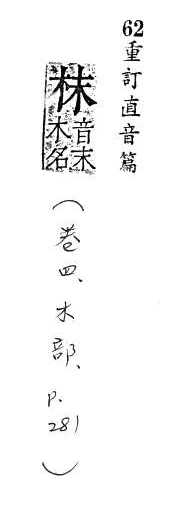 62重訂直音篇
枺音末木名
(卷四、木部、p.281)